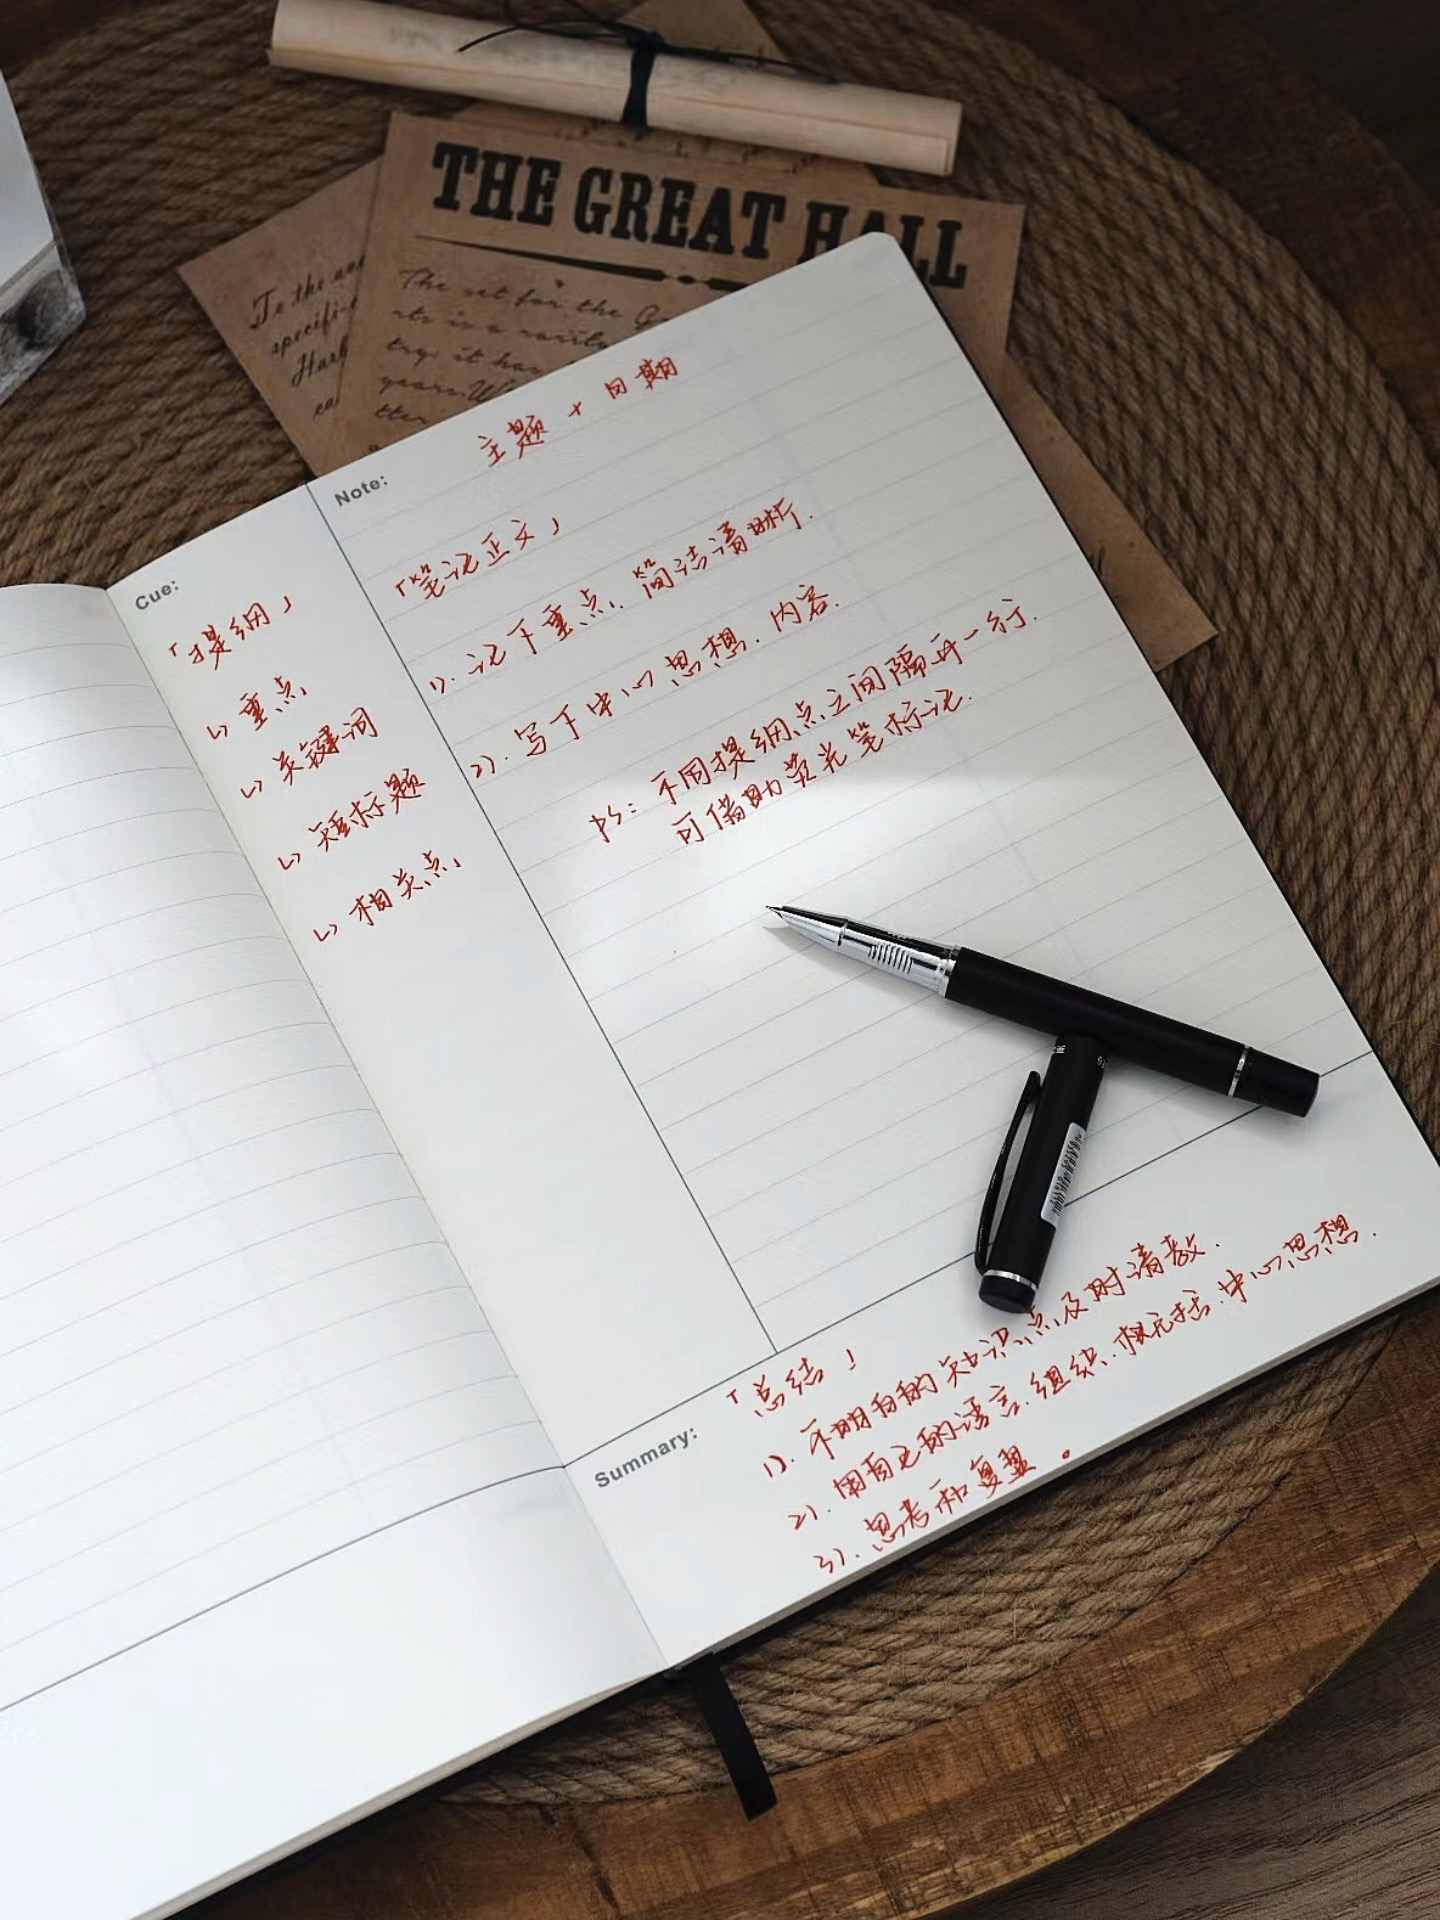 THE GREAT HALL
To the
specific
The set for the
try it has
主题 + 日期
Note:
「笔记正文」
1). 记下重点, 简洁清晰.
2). 写下中心思想. 内容.
ps: 不同提纲点之间隔开一行.
可借助荧光笔标记.
Cue:
「提纲」
↳ 重点
↳ 关键词
↳ 短标题
↳ 相关点
Summary:
「总结」
1). 不明白的知识点及时请教.
2). 用自己的语言. 组织. 概括. 中心思想.
3). 思考和复盘.